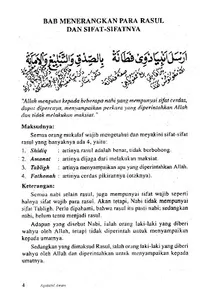 BAB MENERANGKAN PARA RASUL
DAN SIFAT-SIFATNYA
أرسل أنبيا ذوي فطانة بالصدق والتبليغ والأمانة
"Allah mengutus kepada beberapa nabi yang mempunyai sifat cerdas,
dapat dipercaya, menyampaikan perkara yang diperintahkan Allah
dan tidak melakukan maksiat."
Maksudnya:
Semua orang mukallaf wajib mengetahui dan meyakini sifat-sifat
rasul yang banyaknya ada 4, yaitu:
1. Shidiq : artinya rasul adalah benar, tidak berbohong.
2. Amanat : artinya dijaga dari melakukan maksiat.
3. Tabligh : artinya menyampaikan apa yang diperintahkan Allah.
4. Fathonah : artinya cerdas pikirannya (otaknya).
Keterangan:
Semua nabi selain rasul, juga mempunyai sifat wajib seperti
halnya sifat wajib para rasul. Akan tetapi, Nabi tidak mempunyai
sifat Tabligh. Perlu dipahami, bahwa rasul itu pasti nabi; sedangkan
nabi, belum tentu menjadi rasul.
Adapun yang disebut Nabi, ialah orang laki-laki yang diberi
wahyu oleh Allah, tetapi tidak diperintahkan untuk menyampaikan
kepada umatnya.
Sedangkan yang dimaksud Rasul, ialah orang laki-laki yang diberi
wahyu oleh Allah dan diperintahkan untuk menyampaikan kepada
umatnya.
4